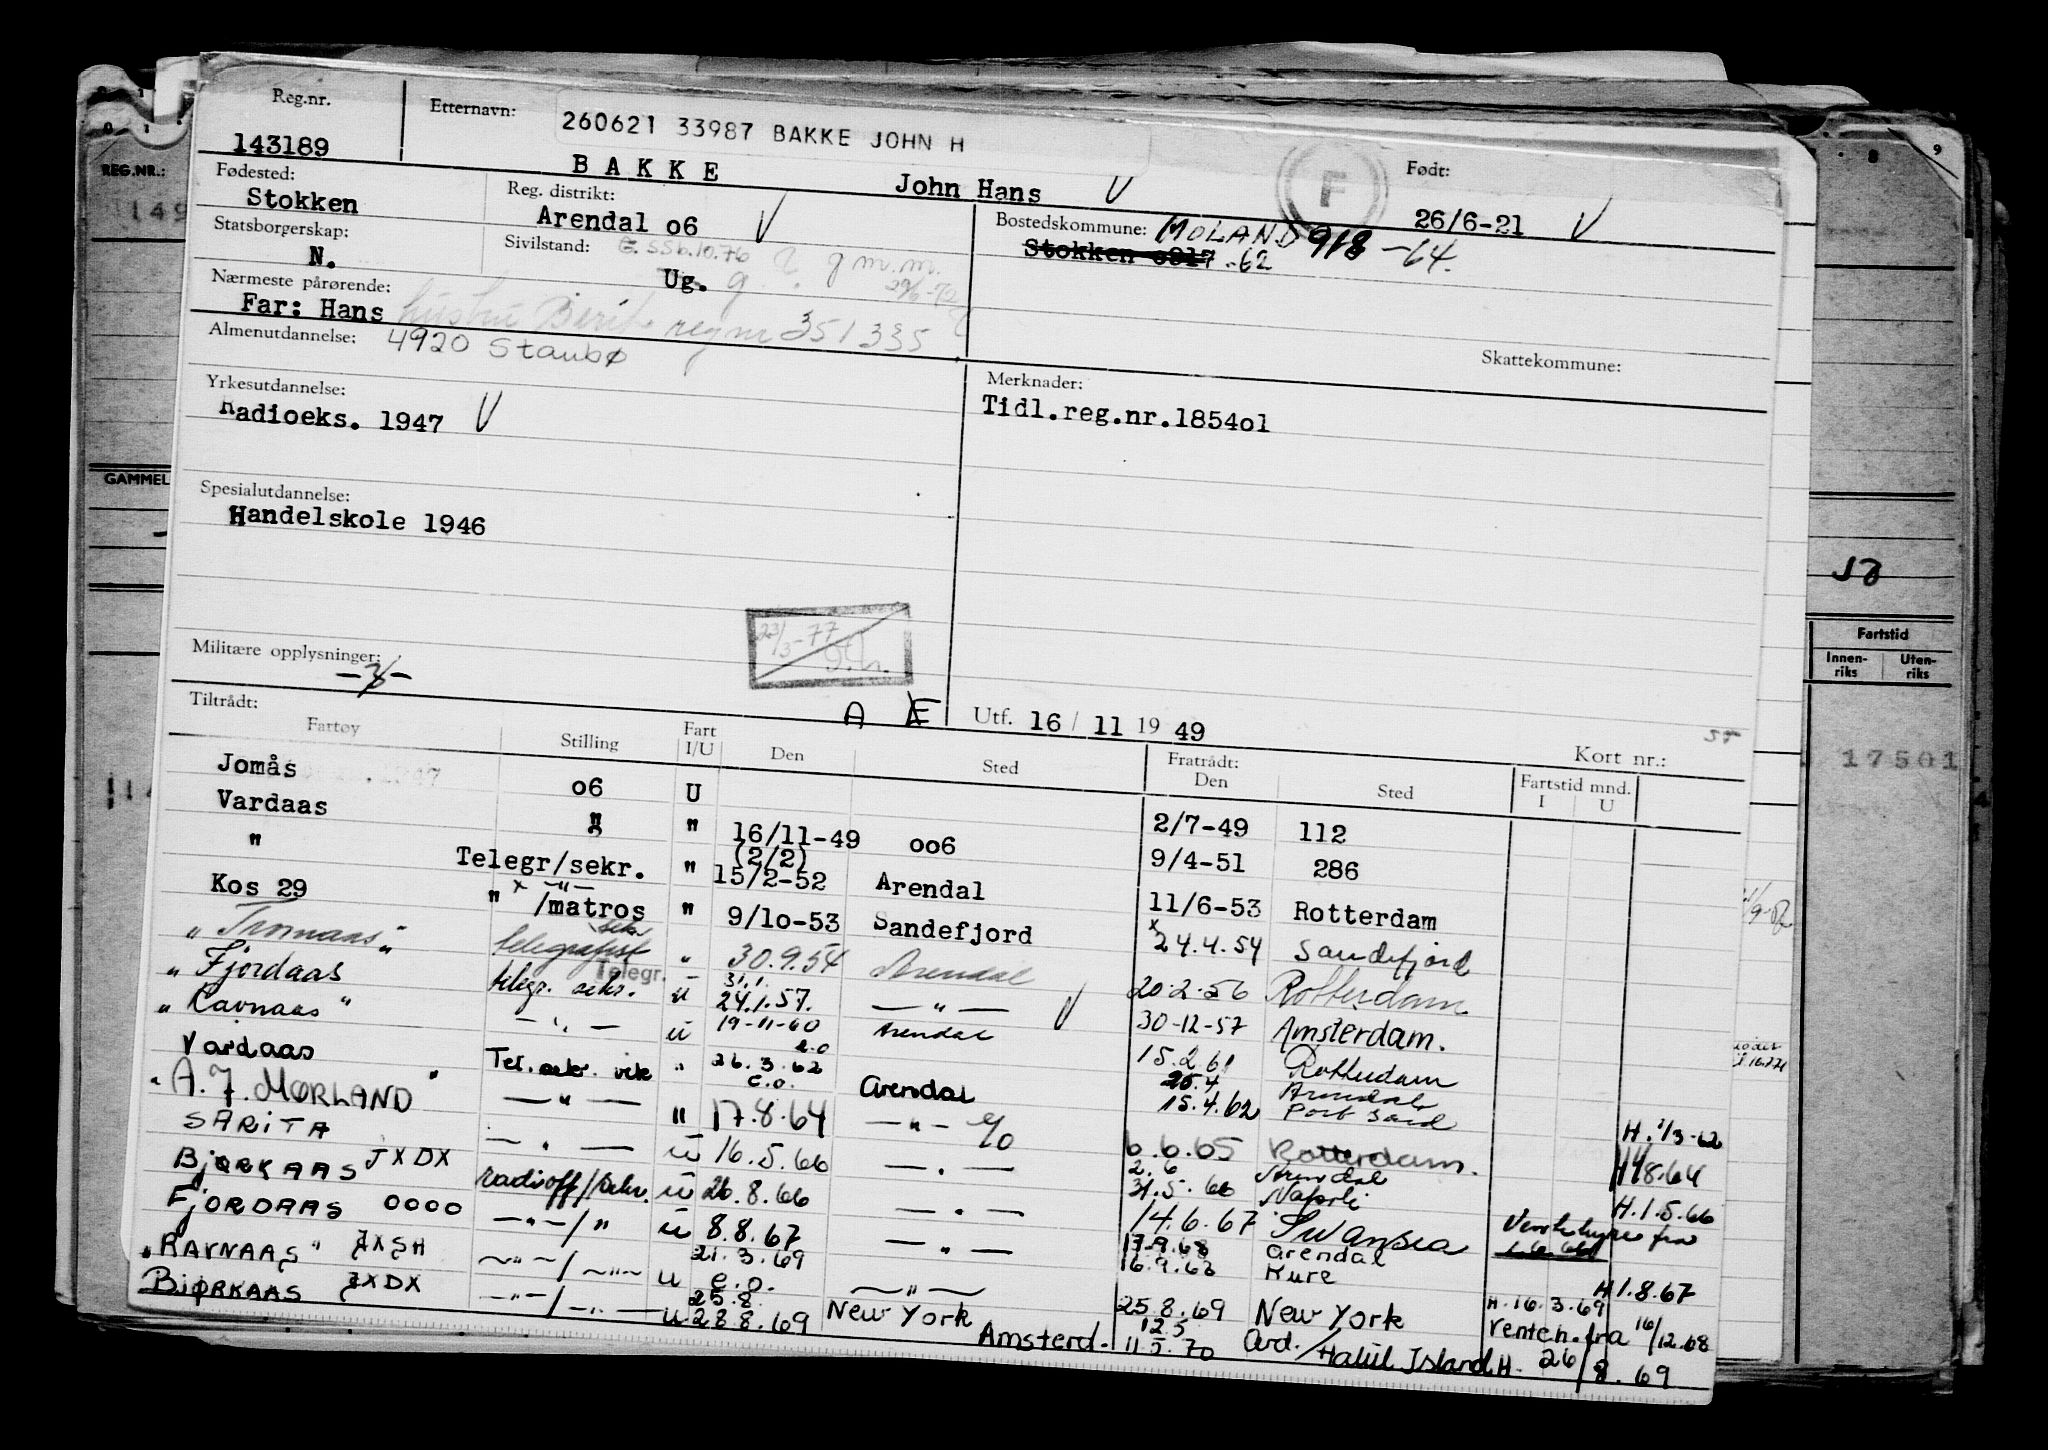 Reg.nr.
143189
Etternavn:
260621 33987 BAKKE JOHN H
BAKKE John Hans V
F
Født:
26/6-21 V
Fødested:
Stokken
Reg. distrikt:
Arendal o6 V
Bostedskommune: MOLAND 918 -64.
Stokken o917 -62
Statsborgerskap:
N.
Sivilstand:
Ug. g
Nærmeste pårørende:
Far: Hans hustru Berit reg nr 351335
Almenutdannelse: 4920 Staubø
Skattekommune:
Yrkesutdannelse:
Radioeks. 1947 V
Merknader:
Tidl.reg.nr.1854o1
Spesialutdannelse:
Handelskole 1946
Militære opplysninger:
23/3-77
A E
Utf. 16 / 11 19 49
Kort nr.:
Tiltrådt:
Fartøy Stilling Fart I/U Den Sted Fratrådt: Den Sted Fartstid mnd. I U
Jomås o6 U 2/7-49 112
Vardaas " " 16/11-49 oo6 9/4-51 286
" Telegr/sekr. " (2/2) 15/2-52 Arendal 11/6-53 Rotterdam
Kos 29 " /matros " 9/10-53 Sandefjord 24.4.54 Sandefjord
"Tromaas" telegrafist sekr " 30.9.54 Arendal 20.2.56 Rotterdam
"Fjordaas telegr. sekr. Telegr. u 31.1. 24.1.57. — " — V 30-12-57 Amsterdam.
"Ravnaas" — " — u 19-11-60 Arendal 15.2.61 Rotterdam
Vardaas Tel. sekr. vik " 26.3.62 e.o. Arendal 25.4 15.4.62 Arendal Port Said H. 1/3-62
"A. J. MØRLAND" — " — " 17.8.64 — " — 6.6.65 Rotterdam. H 1/8.64
SARITA — " — u 16.5.66 — " — 2.6 31.5.66 Arendal Napoli H.1.5.66
BJØRKAAS JXDX radioff/sekr. u 26.8.66 — " — 14.6.67 Swansea Ventehyre fra
FJORDAAS OOOO — " — / " u 8.8.67 — " — 17.9.68 16.9.68 Arendal Kure H 1.8.67
"RAVNAAS" JXSH — " — / — " — u 21.3.69 e.o. — " — 25.8.69 New York H. 16.3.69 venteh. fra 16/12.68
BJØRKAAS JXDX — " — / — " — u 25.8. 28.8.69 New York Amsterd. 12.5 11.5.70 Ard. / Island H. 26/8.69
REG.NR.:
GAMMEL
Fartstid
Innen-riks
Uten-riks
17501